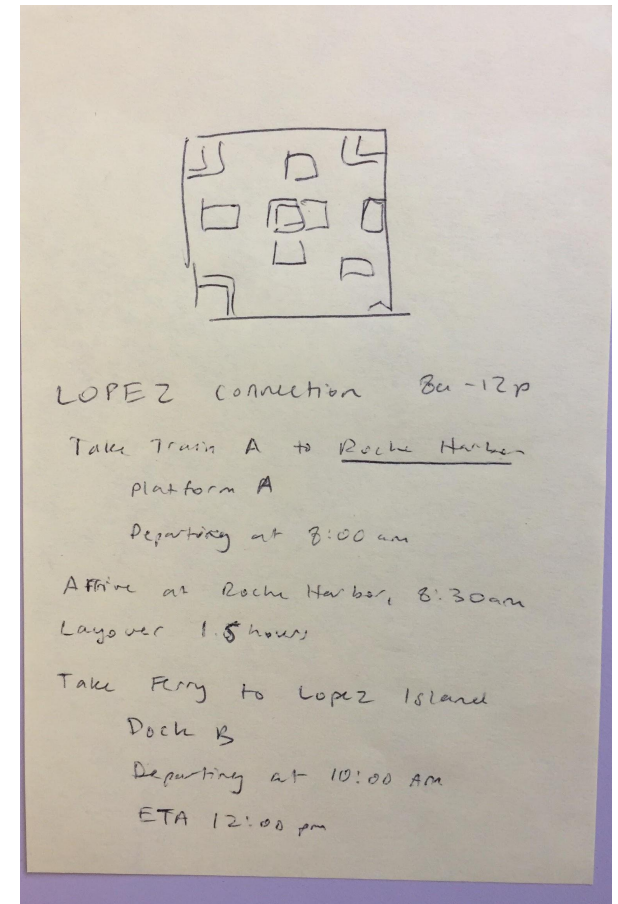 LOPEZ connection 8a-12p
Take Train A to Roche Harbor
Platform A
Departing at 8:00 am
Arrive at Roche Harbor, 8:30am
Layover 1.5 hours
Take Ferry to Lopez Island
Dock B
Departing at 10:00 AM
ETA 12:00 pm